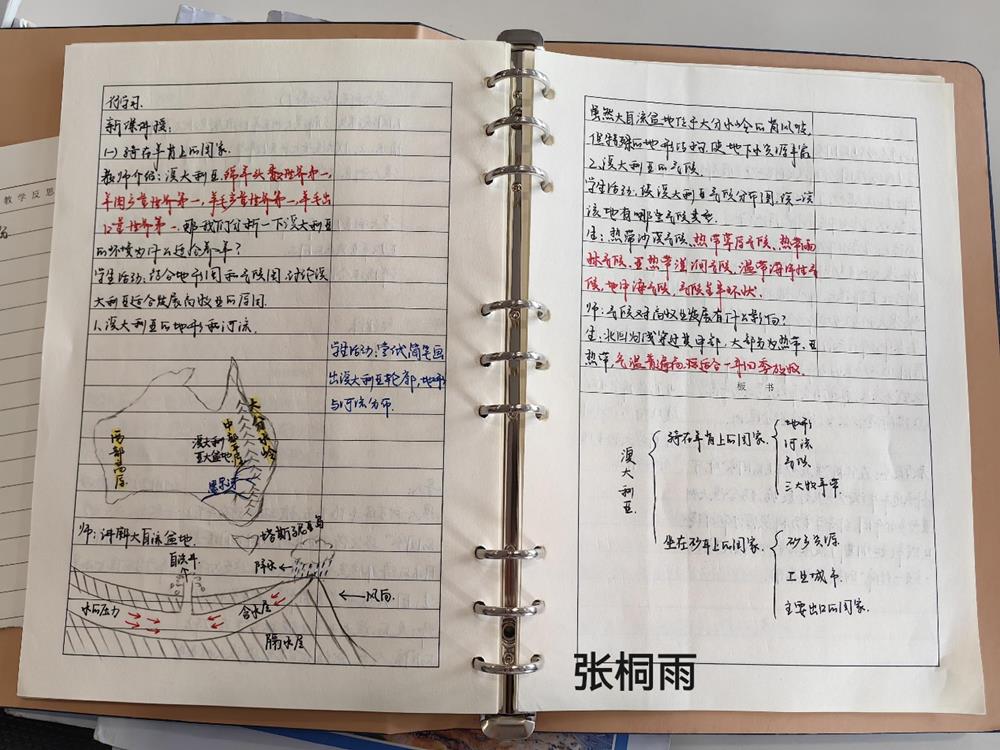 教学反思
的学习.
新课讲授:
(一) 骑在羊背上的国家.
教师介绍: 澳大利亚绵羊头数世界第一,
羊肉产量世界第一, 羊毛产量世界第一, 羊毛出
口量世界第一. 那我们分析一下澳大利亚
的环境为什么适合养羊?
学生活动: 结合地形图和气候图, 讨论澳
大利亚适合发展畜牧业的原因.
1. 澳大利亚的地形和河流.
学生活动: 尝试简笔画
出澳大利亚轮廓, 地形
与河流分布.
西部高原
澳大利
亚大盆地
中部平原
大分水岭
墨累河
塔斯马尼亚岛
师: 讲解大自流盆地
自流井
降水
水的压力
含水层
风向.
隔水层
虽然大自流盆地位于大分水岭的背风坡,
但特殊的地形结构, 使地下水资源丰富
2. 澳大利亚的气候.
学生活动: 读澳大利亚气候分布图, 说一说
该地有哪些气候类型.
生: 热带沙漠气候、热带草原气候、热带雨
林气候、亚热带湿润气候、温带海洋性气
候, 地中海气候, 气候呈半环状.
师: 气候对畜牧业发展有什么影响?
生: 北回归线穿过其中部, 大部分为热带、亚
热带, 气温普遍高, 适合一年四季放牧.
板 书
澳大利亚
骑在羊背上的国家.
地形
河流
气候
三大牧羊带.
坐在矿车上的国家.
矿产资源
工业城市
主要出口的国家.
张桐雨